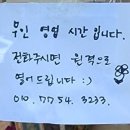 무인 영업 시간 입니다.
전화주시면 원격으로
열어드립니다 :)
010. 7754. 3233.